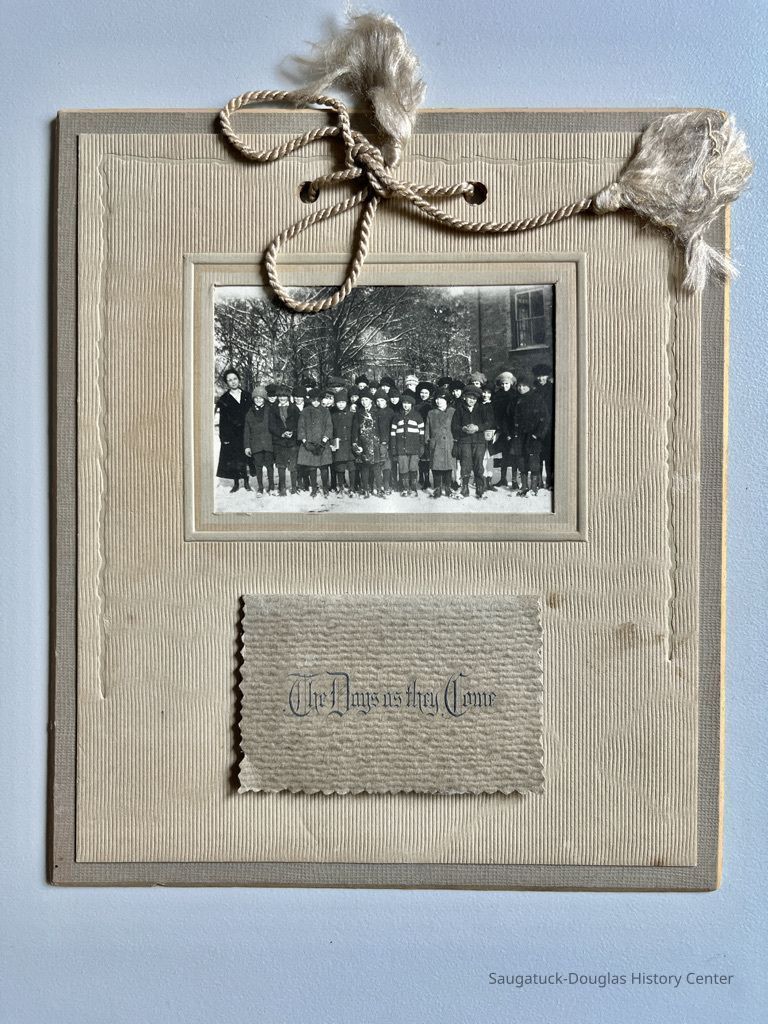 The Days as they Come
Saugatuck-Douglas History Center